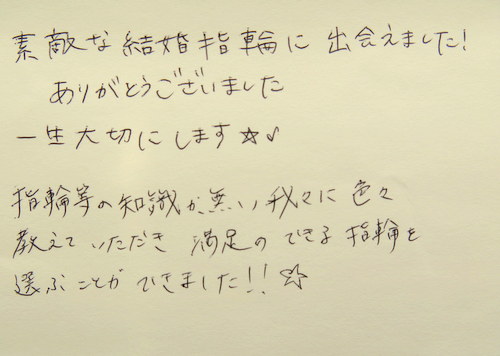 素敵な結婚指輪に出会えました!
ありがとうございました
一生大切にします☆♪
指輪等の知識が無い我々に色々
教えていただき満足のできる指輪を
選ぶことができました!!☆